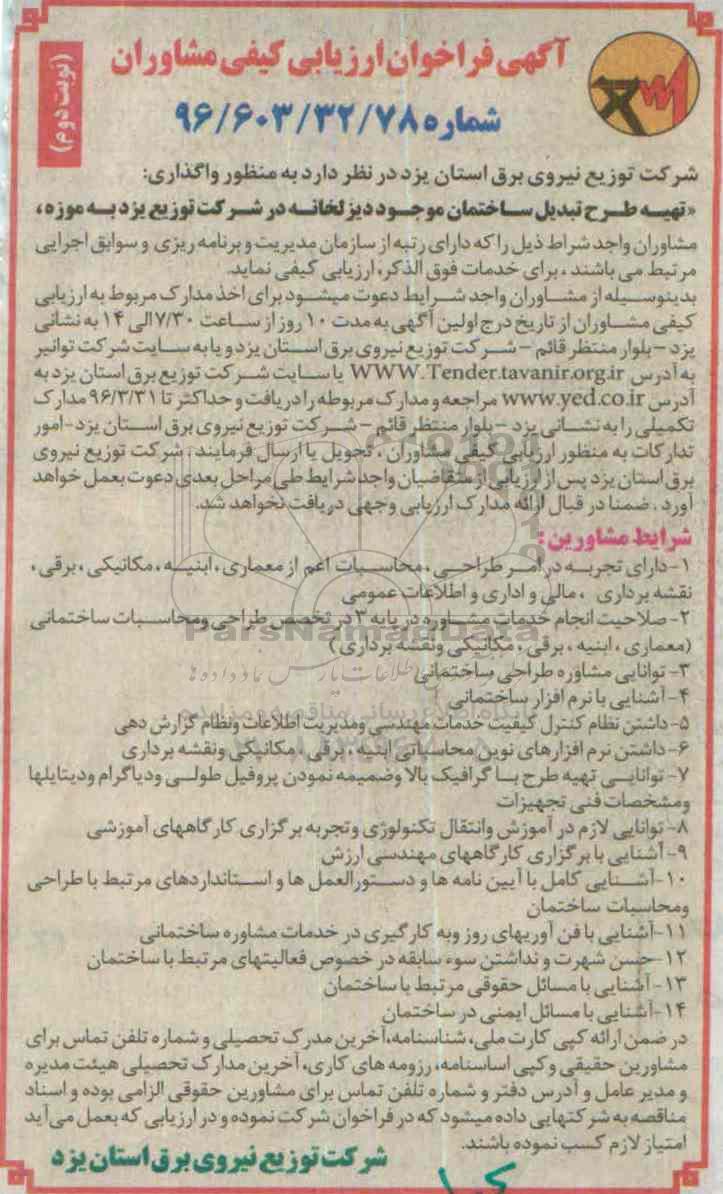 آگهی فراخوان ارزیابی کیفی مشاوران
(نوبت دوم)
شماره ۹۶/۶۰۳/۳۲/۷۸
شرکت توزیع نیروی برق استان یزد در نظر دارد به منظور واگذاری:
«تهیه طرح تبدیل ساختمان موجود دیزلخانه در شرکت توزیع یزد به موزه،
مشاوران واجد شراط ذیل را که دارای رتبه از سازمان مدیریت و برنامه ریزی و سوابق اجرایی
مرتبط می باشند ، برای خدمات فوق الذکر، ارزیابی کیفی نماید.
بدینوسیله از مشاوران واجد شرایط دعوت میشود برای اخذ مدارک مربوط به ارزیابی
کیفی مشاوران از تاریخ درج اولین آگهی به مدت ۱۰ روز از ساعت ۷/۳۰ الی ۱۴ به نشانی
یزد – بلوار منتظر قائم – شرکت توزیع نیروی برق استان یزد و یا به سایت شرکت توانیر
به آدرس WWW.Tender.tavanir.org.ir یا سایت شرکت توزیع برق استان یزد به
آدرس www.yed.co.ir مراجعه و مدارک مربوطه را دریافت و حداکثر تا ۹۶/۳/۳۱ مدارک
تکمیلی را به نشانی یزد – بلوار منتظر قائم – شرکت توزیع نیروی برق استان یزد-امور
تدارکات به منظور ارزیابی کیفی مشاوران ، تحویل یا ارسال فرمایند . شرکت توزیع نیروی
برق استان یزد پس از ارزیابی از متقاضیان واجد شرایط طی مراحل بعدی دعوت بعمل خواهد
آورد . ضمنا در قبال ارائه مدارک ارزیابی وجهی دریافت نخواهد شد.
شرایط مشاورین:
۱-دارای تجربه در امر طراحی ، محاسبات اعم از معماری ، ابنیه ، مکانیکی ، برقی ،
نقشه برداری ، مالی و اداری و اطلاعات عمومی
۲- صلاحیت انجام خدمات مشاوره در پایه ۳ در تخصص طراحی ومحاسبات ساختمانی
(معماری ، ابنیه ، برقی ، مکانیکی ونقشه برداری )
ParsNamadData
۳- توانایی مشاوره طراحی ساختمانی
۴- آشنایی با نرم افزار ساختمانی
۵-داشتن نظام کنترل کیفیت خدمات مهندسی ومدیریت اطلاعات ونظام گزارش دهی
۶- داشتن نرم افزارهای نوین محاسباتی ابنیه ، برقی ، مکانیکی ونقشه برداری
۷- توانایی تهیه طرح با گرافیک بالا وضمیمه نمودن پروفیل طولی ودیاگرام ودیتایلها
ومشخصات فنی تجهیزات
۸- توانایی لازم در آموزش وانتقال تکنولوژی وتجربه برگزاری کارگاههای آموزشی
۹- آشنایی با برگزاری کارگاههای مهندسی ارزش
۱۰-آشنایی کامل با آیین نامه ها و دستورالعمل ها و استانداردهای مرتبط با طراحی
ومحاسبات ساختمان
۱۱-آشنایی با فن آوریهای روز وبه کارگیری در خدمات مشاوره ساختمانی
۱۲-حسن شهرت و نداشتن سوء سابقه در خصوص فعالیتهای مرتبط با ساختمان
۱۳- آشنایی با مسائل حقوقی مرتبط با ساختمان
۱۴-آشنایی با مسائل ایمنی در ساختمان
در ضمن ارائه کپی کارت ملی، شناسنامه،آخرین مدرک تحصیلی و شماره تلفن تماس برای
مشاورین حقیقی و کپی اساسنامه، رزومه های کاری، آخرین مدارک تحصیلی هیئت مدیره
و مدیر عامل و آدرس دفتر و شماره تلفن تماس برای مشاورین حقوقی الزامی بوده و اسناد
مناقصه به شرکتهایی داده میشود که در فراخوان شرکت نموده و در ارزیابی که بعمل می آید
امتیاز لازم کسب نموده باشند.
شرکت توزیع نیروی برق استان یزد